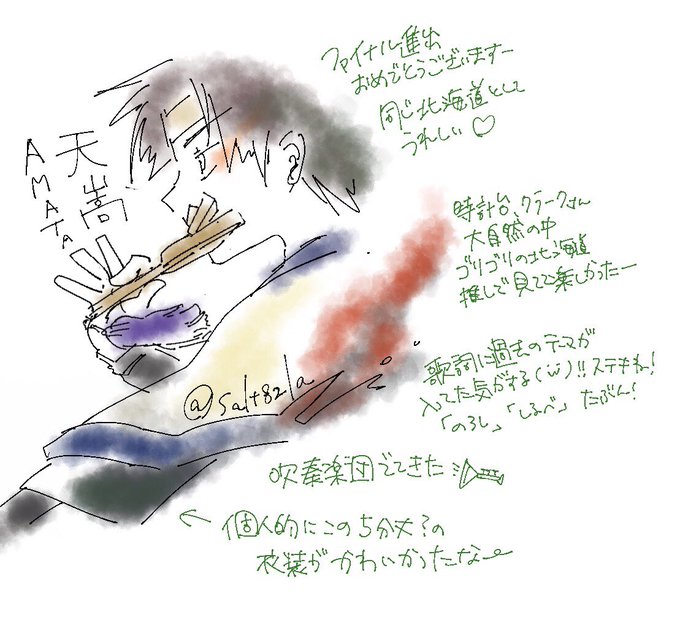 ファイナル進出
おめでとうございますー
同じ北海道として
うれしい♡
天嵩
AMATa
時計台、クラークさん
大自然の中
ゴリゴリの北海道
推しで見てて楽しかったー
歌詞に過去のテーマが
入ってた気がする(˙ω˙)!!ステキね!
「のろし」「しるべ」たぶん!
@salt821a
吹奏楽団でてきた
← 個人的にこの5分丈?の
衣装がかわいかったなー